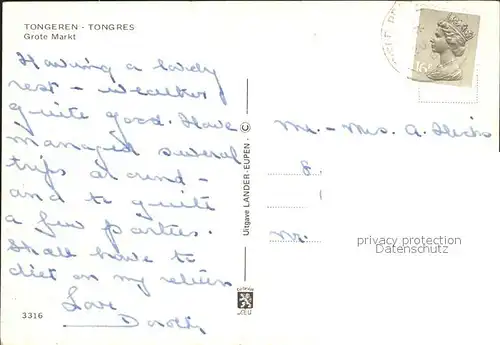 TONGEREN - TONGRES
Grote Markt
Having a lovely
rest - weather
quite good. Have
managed several
trips around -
and to quite
a few parties.
Shall have to
diet on my return
Love
Dorothy
3316
Uitgave LANDER-EUPEN - ©
Mr. - Mrs. A.
8.
Mr.
16
privacy protection
Datenschutz